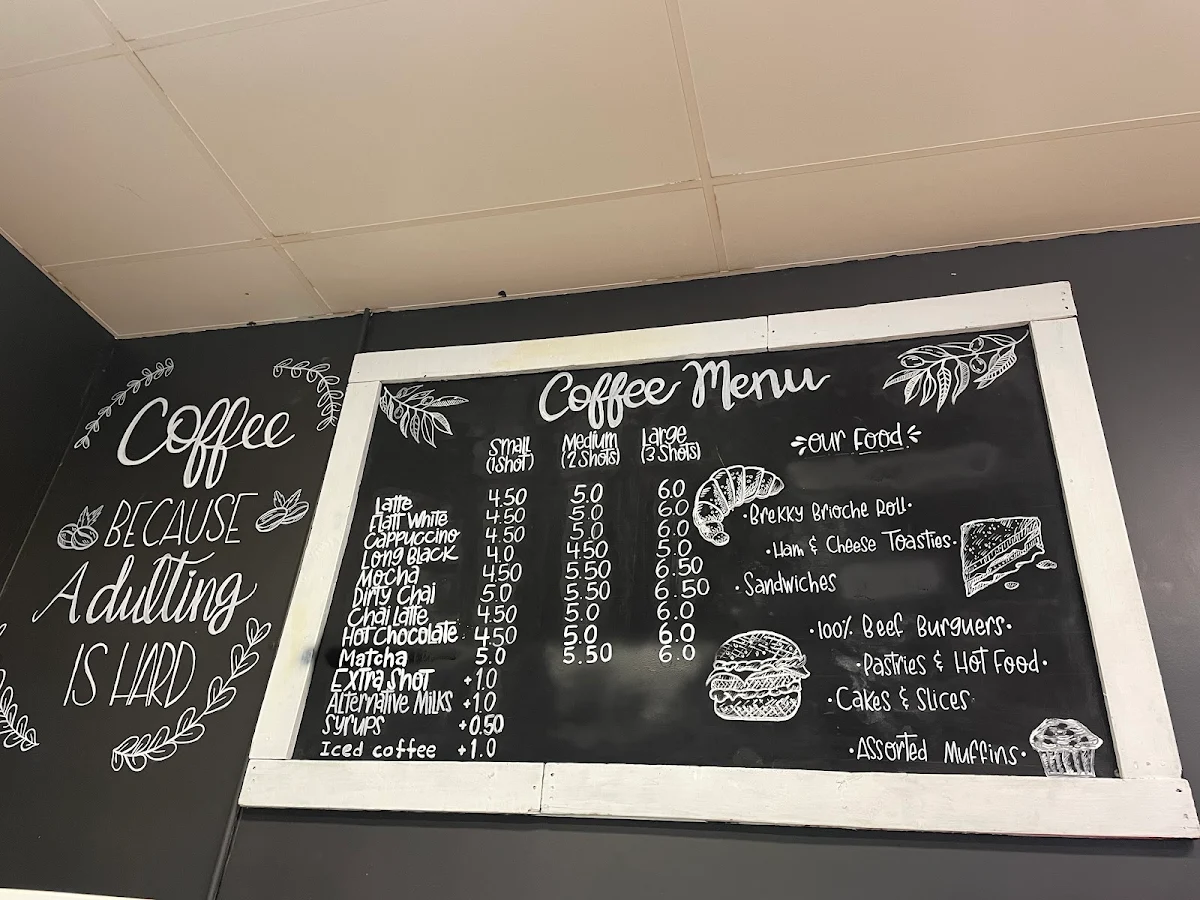 Coffee
BECAUSE
Adulting
IS HARD
Coffee Menu
Small (1Shot) Medium (2 Shots) Large (3 Shots)
Latte 4.50 5.0 6.0
Flatt White 4.50 5.0 6.0
Cappuccino 4.50 5.0 6.0
Long Black 4.0 4.50 5.0
Mocha 4.50 5.50 6.50
Dirty Chai 5.0 5.50 6.50
Chai Latte 4.50 5.0 6.0
Hot Chocolate 4.50 5.0 6.0
Matcha 5.0 5.50 6.0
Extra Shot +1.0
Alternative Milks +1.0
Syrups +0.50
Iced coffee +1.0
Our Food
•Brekky Brioche Roll•
•Ham & Cheese Toasties•
•Sandwiches
•100% Beef Burguers•
•Pastries & Hot Food•
•Cakes & Slices
•Assorted Muffins•